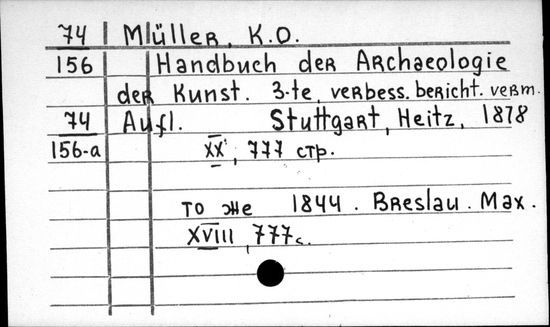 74 Müller, K.O.
156 Handbuch der Archaeologie
der Kunst. 3-te, verbess. bericht. verm.
74 Aufl. Stuttgart, Heitz, 1878
156-a XX, 777 стр.
то же 1844. Breslau. Max.
XVIII, 777 с.